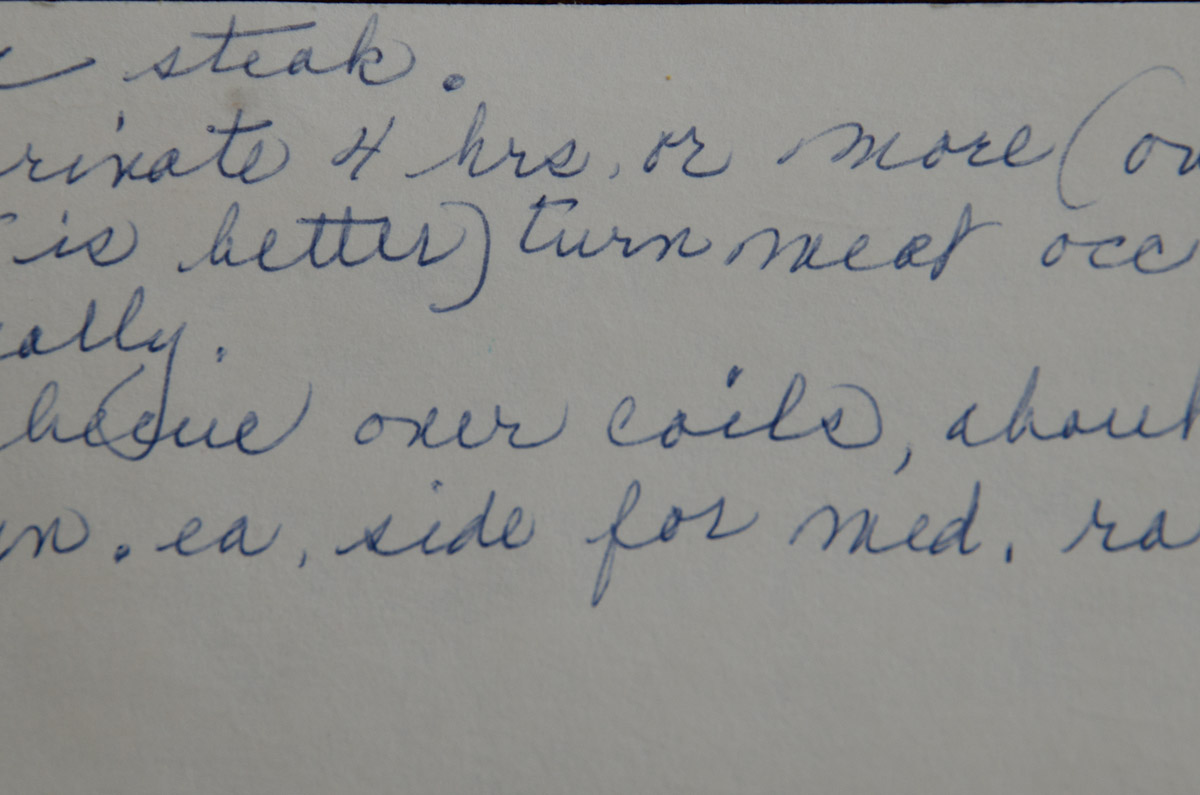 steak.
rinate 4 hrs. or more (ov
is better) turn meat occ
ally.
becue over coils, about
in. ea. side for med. ra